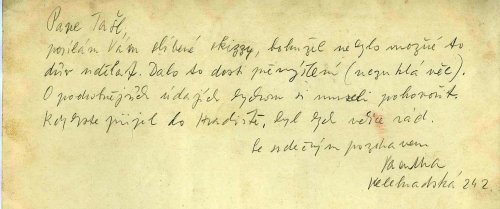 Pane Tašl,
posílám Vám slíbené skizzy, bohužel nebylo možné to
dřív udělat. Dalo to dost přemýšlení (nezvyklá věc).
O podrobnějších údajích bychom si museli pohovořit.
Kdybyste přijel do Hradiště, byl bych velice rád.
Se srdečným pozdravem
Velehradská 242.